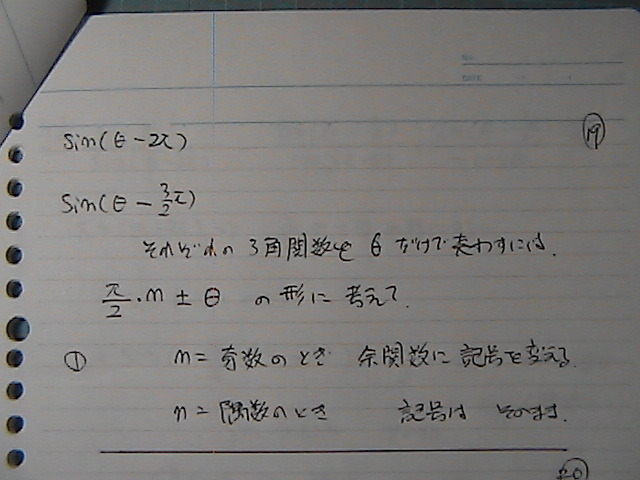 No.
DATE
⑲
sin(θ-2π)
sin(θ-3/2π)
それぞれの3角関数をθだけで表わすには.
π/2・n±θ の形に考えて.
① n=奇数のとき 余関数に記号を変える.
n=偶数のとき 記号はそのまま.
⑳